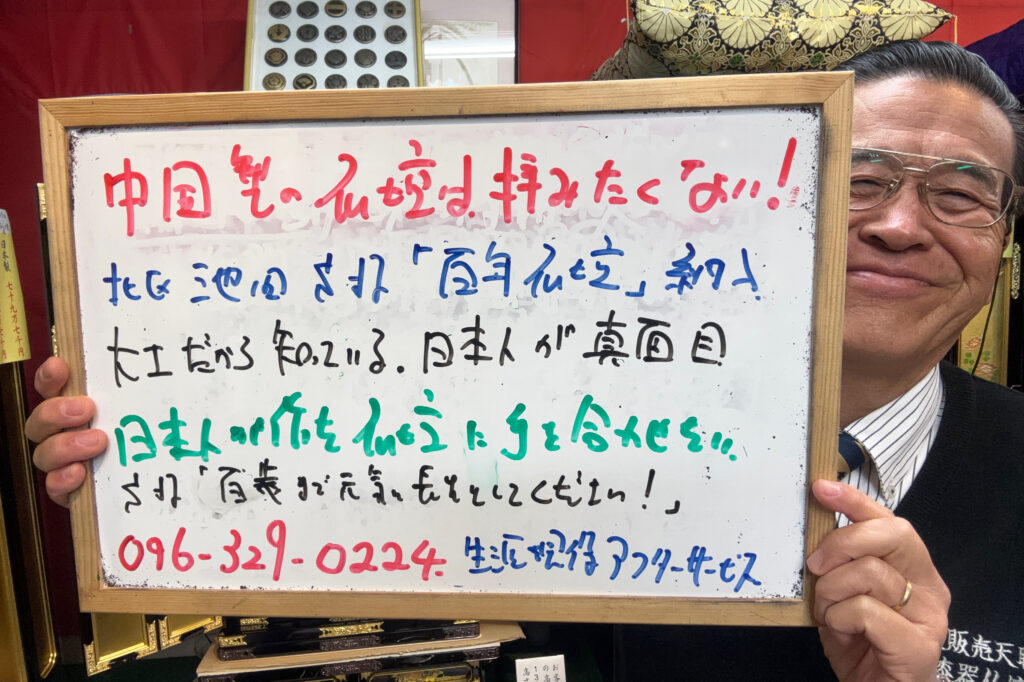 中国製の仏壇は拝みたくない！
北区 池田さま「百年仏壇」納入
大工だから知っている。日本人が真面目
日本人が作る仏壇に手を合わせたい。
さま「百歳まで元気に長生きしてください！」
096-329-0224. 生涯担保 アフターサービス
日本製 七十九万七千円
販売天
漆器仏